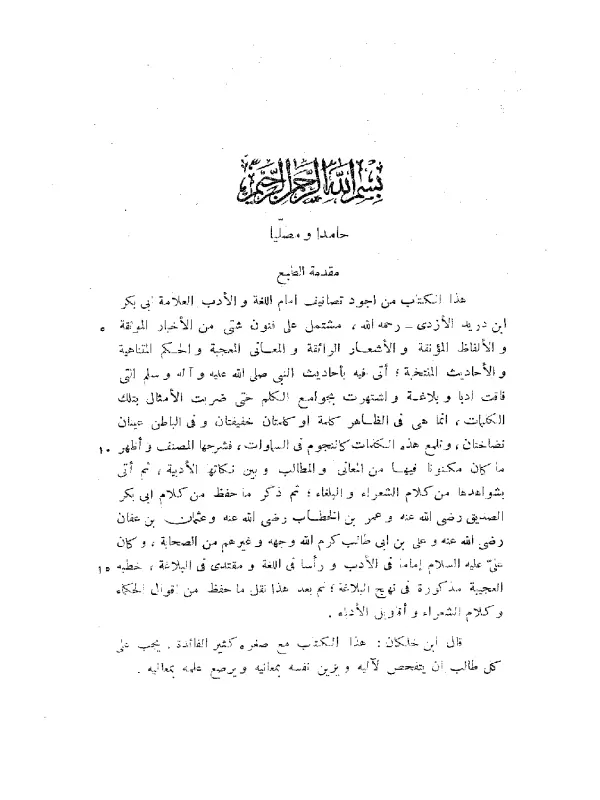 بسم الله الرحمن الرحيم
حامدا و مصليا
مقدمة الطبع
هذا الكتاب من اجود تصانيف امام اللغة و الأدب العلامة ابى بكر
ابن دريد الأزدى – رحمه الله ، مشتمل على فنون شتى من الأخبار المونقة ٥
و الألفاظ المؤنقة و الأشعار الرائقة و المعانى المعجبة و الحكم المتناهية
و الأحاديث المنتخبة ؛ أتى فيه بأحاديث النبى صلى الله عليه و آله و سلم التى
فاقت ادبا و بلاغة و اشتهرت بجوامع الكلم حتى ضربت الأمثال بتلك
الكلمات ، انما هى فى الظاهر كلمة او كلمتان خفيفتان و فى الباطن عينان
نضاختان ، و تلمع هذه الكلمات كالنجوم فى السماوات ، فشرحها المصنف و أظهر ١٠
ما كان مكنونا فيها من المعانى و المطالب و بين نكاتها الأدبية ، ثم أتى
بشواهدها من كلام الشعراء و البلغاء ؛ ثم ذكر ما حفظ من كلام ابى بكر
الصديق رضى الله عنه و عمر بن الخطاب رضى الله عنه و عثمان بن عفان
رضى الله عنه و على بن ابى طالب كرم الله وجهه و غيرهم من الصحابة ، و كان
علىّ عليه السلام إماما فى الأدب و رأسا فى اللغة و مقتدى فى البلاغة ، خطبه ١٥
العجيبة مذكورة فى نهج البلاغة ؛ ثم بعد هذا نقل ما حفظ من اقوال الحكماء
و كلام الشعراء و أقاويل الأدباء .
قال ابن خلكان : هذا الكتاب مع صغره كثير الفائدة . يجب على
كل طالب ان يتفحص لآليه و يزين نفسه بمعانيه و يرصع علمه بمعاليه .